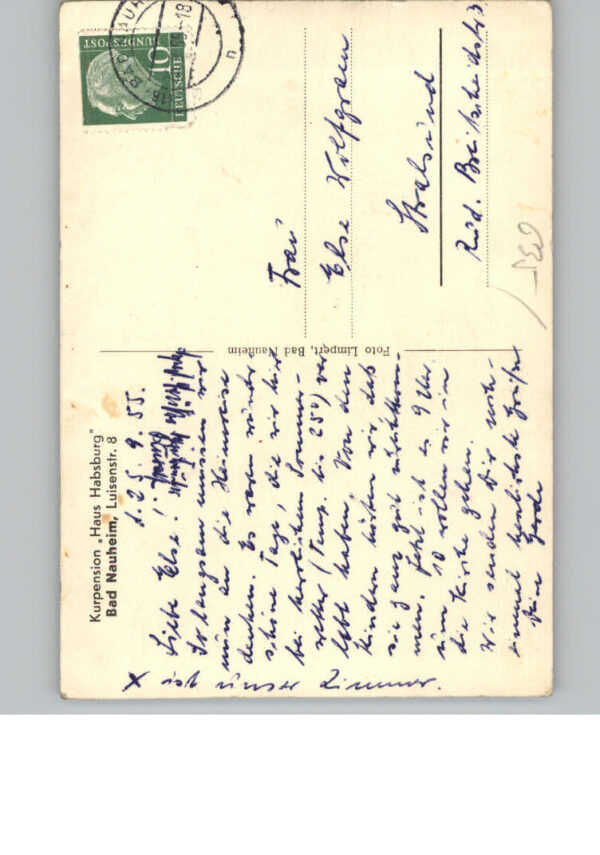 Kurpension „Haus Habsburg"
Bad Nauheim, Luisenstr. 8
d. 25. 9. 55.
Liebe Else!
So langsam müssen wir
nun an die Heimreise
denken. Es waren wieder
schöne Tage, die wir hier
bei herrlichem Sommer-
wetter (Temp. bis 25°) ver
lebt haben. Von den
Kindern hörten wir, daß
sie ganz gut
men. Jetzt ist es 9 Uhr.
um 10 wollen wir in
die Kirche gehen.
Wir senden Dir noch-
einmal herzlichste Grüße
Deine
X ist unser Zimmer.
Foto Limpert, Bad Nauheim
DEUTSCHE
BUNDESPOST
10
-18
n
Frau
Else Wolfgram
Stralsund
Rud. Breitscheidstr.